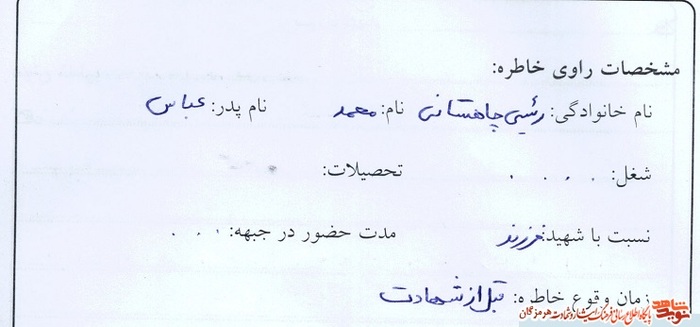 مشخصات راوی خاطره:
نام خانوادگی: رئیسی چاهستانی نام: محمد نام پدر: عباس
شغل: . . . . تحصیلات:
نسبت با شهید: فرزند مدت حضور در جبهه: . . .
زمان وقوع خاطره: قبل از شهادت
نوید شاهد
پایگاه اطلاع رسانی فرهنگ ایثار و شهادت هرمزگان